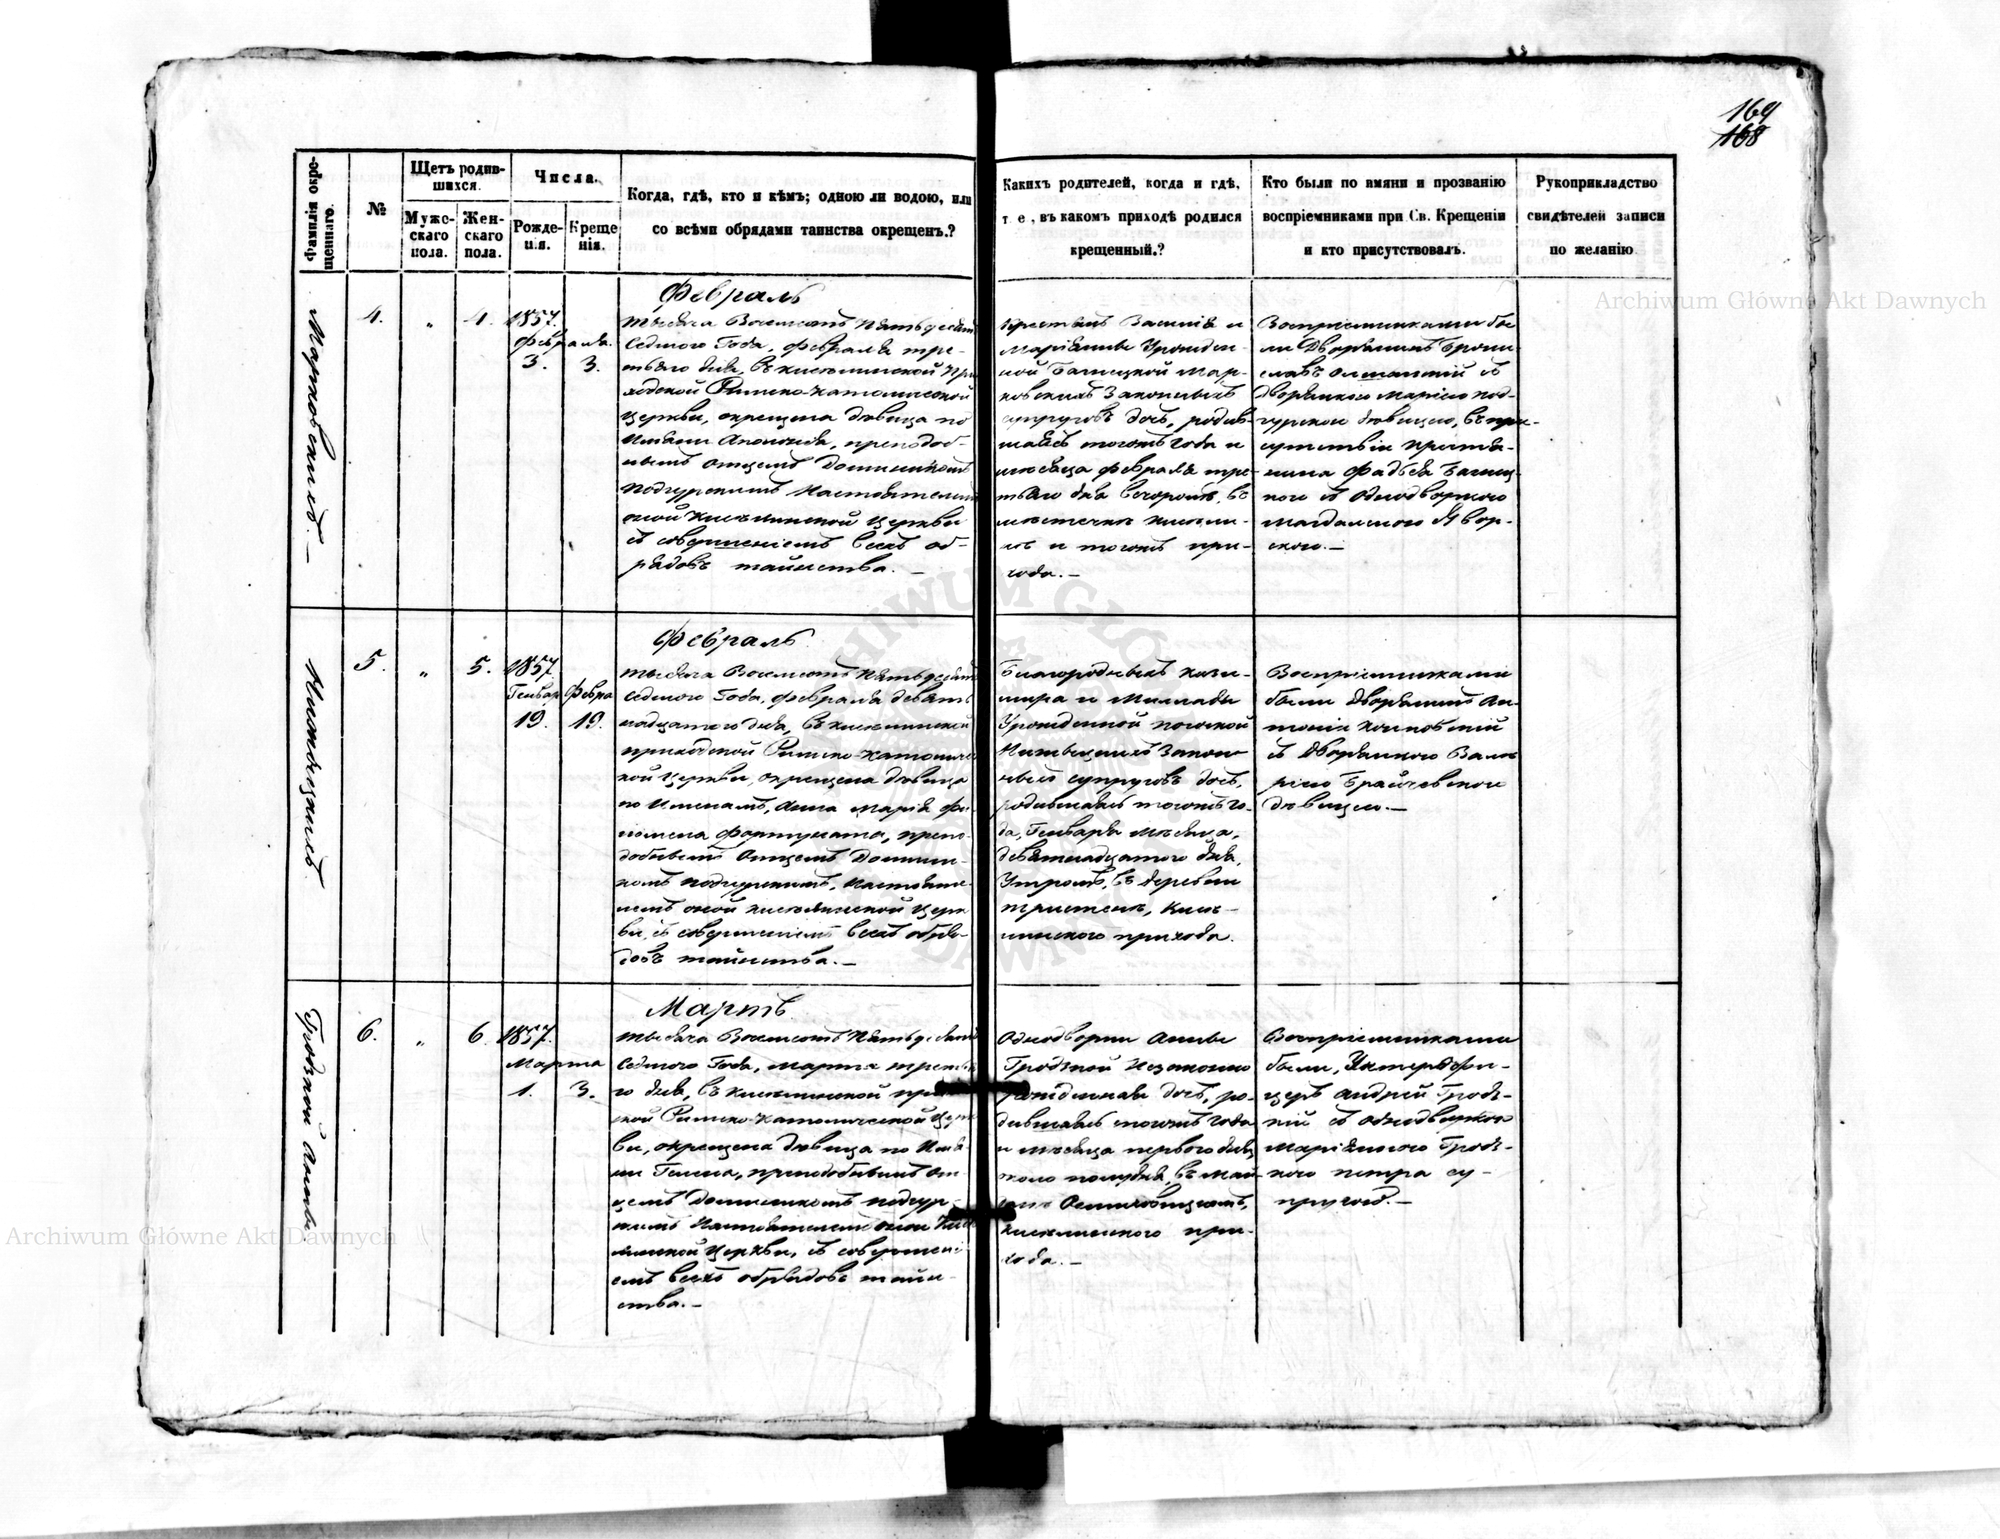 169
168
Фамилія окре-
щеннаго.
№
Щетъ родив-
шихся.
Мужс-
скаго
пола.
Жен-
скаго
пола.
Числа.
Рожде-
нія.
Креще
нія.
Когда, гдѣ, кто и кѣмъ; одною ли водою, или
со всѣми обрядами таинства окрещенъ.?
Какихъ родителей, когда и гдѣ,
т. е., въ какомъ приходѣ родился
крещенный.?
Кто были по имяни и прозванію
воспріемниками при Св. Крещеніи
и кто присутствовалъ.
Рукоприкладство
свидѣтелей записи
по желанію
Марковскихъ. —
4.
„
4.
1857.
Февраля.
3.
3.
Февраль
Тысяча Восемсотъ Пятьдесятъ
Седмого Года, Февраля тре-
тьяго дня, въ Киселинской При
ходской Римско-Католической
Церкви, окрещена дѣвица по
Имени Аполонія, преподоб-
нымъ отцемъ Доминикомъ
Подгурскимъ Настоятелемъ
оной Киселинской Церкви
съ совершеніемъ всехъ об-
рядовъ тайнства. —
Крестьянъ Василія и
Маріянны Урожден-
ной Багицкой Мар-
ковскихъ Законныхъ
супруговъ дочь, родив-
шаясь тогожъ года и
мѣсяца февраля тре-
тьяго дня вечоромъ, въ
мѣстечкѣ Кисели-
нѣ и тогожъ при-
хода. —
Воспріемниками бы
ли Дворянинъ Брони-
славъ Ольшанскій съ
Дворянкою Маріею Под-
гурскою дѣвицею, въ при-
сутствіи крестья-
нина Фадѣя Багиц-
кого съ Однодворкою
Магдаленою Явор-
скою. —
5.
„
5.
1857
Генвар
19.
Февра
19.
Февраль
Тысяча Восемсотъ Пятьдесятъ
Седмого Года, Февраля девять
надцатого дня, въ Киселинской
приходской Римско-Католичес
кой Церкви, окрещена дѣвица
по Именамъ, Анна Марія Фи
ломена Фортуната, препо-
добнымъ Отцемъ Домини-
комъ Подгурскимъ, Настояте-
лемъ оной Киселинской Церк
ви, съ совершеніемъ всехъ обря-
довъ тайнства. —
Благородныхъ Кази-
мира и
Урожденной
Закон-
ныхъ супруговъ дочь,
родившаясь тогожъ го-
да, Генваря мѣсяца,
девятнадцатого дня,
Утромъ, въ деревни
Тристенѣ, Кисе-
линского прихода.
Воспріемниками
были Дворянинъ Ан-
тоній
съ Дворянкою Вале
ріею Брайчевскою
дѣвицею. —
Гродзкой Анны
6.
„
6.
1857.
Марта
1.
3.
Мартъ
Тысяча Восемсотъ Пятьдесятъ
Седмого Года, Марта третья
го дня, въ Киселинской приход
ской Римско-Католической Церк
ви, окрещена дѣвица по Име
ни Гелена, преподобнымъ От
цемъ Доминикомъ Подгур-
скимъ Настоятелемъ оной Кисе
линской Церкви, съ совершені
емъ всехъ обрядовъ тайн-
ства. —
Однодворки Анны
Гродзкой Незаконно
рожденная дочь, ро-
дившаясь тогожъ года
и мѣсяца первого дня,
около полудня, въ май
данѣ
Киселинского при-
хода. —
Воспріемниками
были, Унтеръ Офи-
церъ Андрей Гродз-
кій съ Однодворкою
Маріянною Гродз-
кого Петра су-
пругою. —
Archiwum Główne Akt Dawnych
Archiwum Główne Akt Dawnych